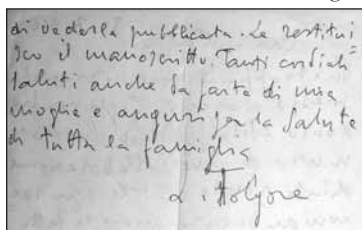 di vederla pubblicata. Le restitui
sco il manoscritto. Tanti cordiali
saluti anche da parte di mia
moglie e auguri per la salute
di tutta la famiglia
L. Folgore